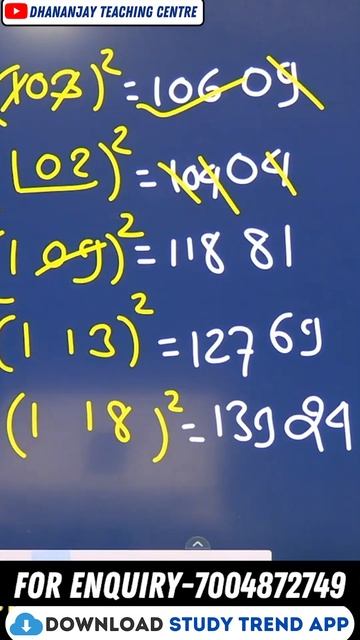 DHANANJAY TEACHING CENTRE
(103)² = 10609
102)² = 10404
(109)² = 11881
(113)² = 12769
(118)² = 13924
FOR ENQUIRY-7004872749
DOWNLOAD STUDY TREND APP